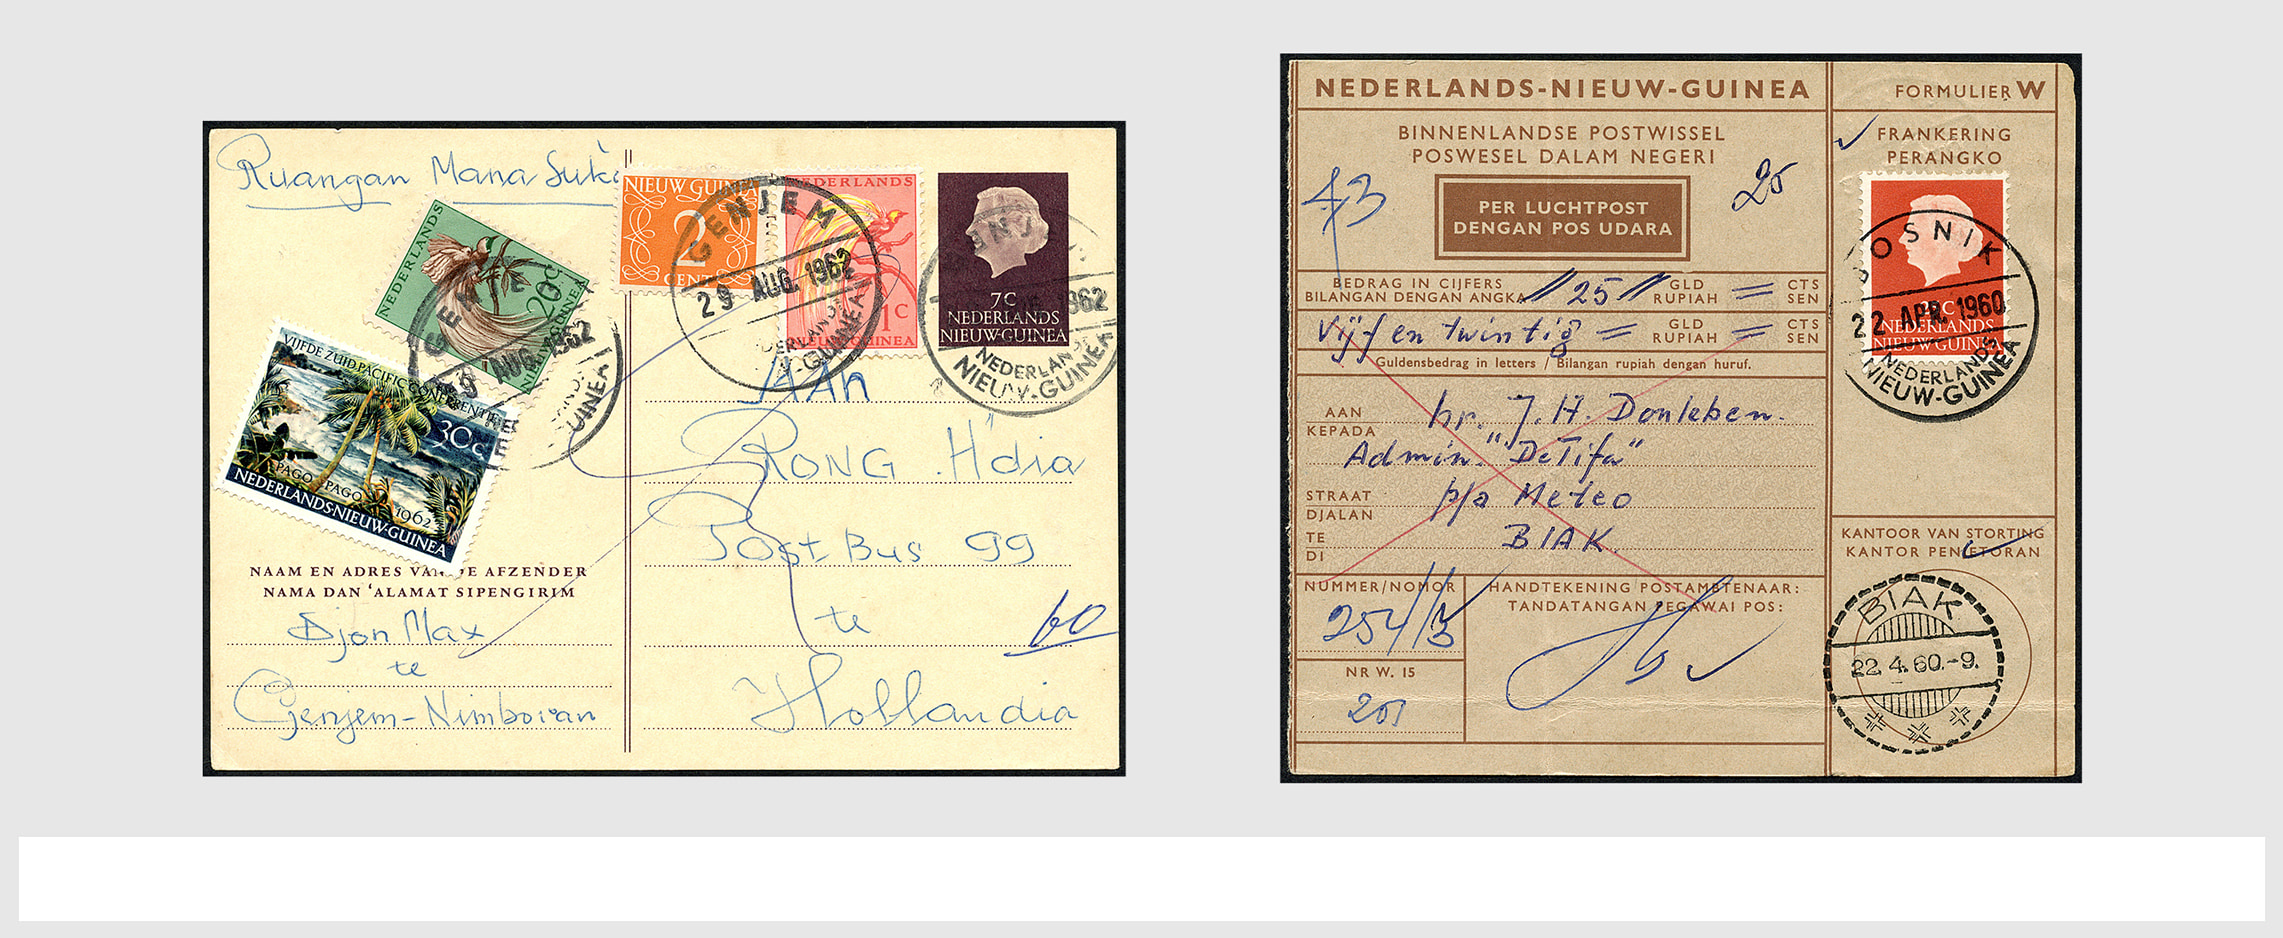 Ruangan Mana Suka
NEDERLANDS
20c
NIEUW GUINEA
2
CENT
NEDERLANDS
1c
7C
NEDERLANDS
NIEUW-GUINEA
GENJEM
29 AUG. 1962
NEDERLANDS
NIEUW-GUINEA
VIJFDE ZUID PACIFIC CONFERENTIE
30c
PAGO PAGO 1962
NEDERLANDS-NIEUW-GUINEA
NAAM EN ADRES VAN DE AFZENDER
NAMA DAN ‘ALAMAT SIPENGIRIM
Djon Max
te
Genjem-Nimboran
Post Bus 99
te
60
Hollandia
NEDERLANDS-NIEUW-GUINEA
FORMULIER W
BINNENLANDSE POSTWISSEL
POSWESEL DALAM NEGERI
PER LUCHTPOST
DENGAN POS UDARA
FRANKERING
PERANGKO
BEDRAG IN CIJFERS // 25 // GLD = CTS
BILANGAN DENGAN ANGKA RUPIAH SEN
Vijf en twintig = GLD = CTS
RUPIAH SEN
Guldensbedrag in letters / Bilangan rupiah dengan huruf.
AAN
KEPADA
hr. J. H. Donleben.
Admin. "De Tifa"
STRAAT
DJALAN
p/a Meteo
TE
DI
BIAK.
NUMMER/NOMOR
254/3
NR W. 15
201
HANDTEKENING POSTAMBTENAAR:
TANDATANGAN PEGAWAI POS:
NEDERLANDS
NIEUW GUINEA
BOSNIK
22 APR. 1960
NEDERLANDS
NIEUW-GUINEA
KANTOOR VAN STORTING
KANTOR PENJETORAN
BIAK
22.4.60.-9.